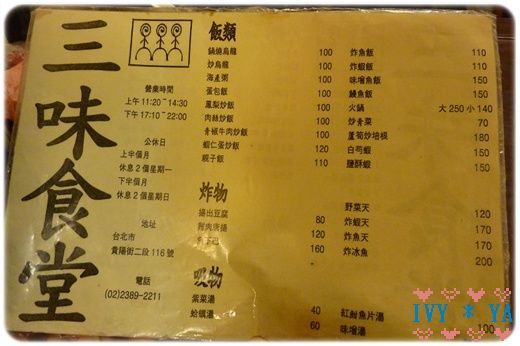 三味食堂
營業時間
上午 11:20 ~ 14:30
下午 17:10 ~ 22:00
公休日
上半個月
休息 2 個星期一
下半個月
休息 2 個星期日
地址
台北市
貴陽街二段 116 號
電話
(02)2389-2211
飯類
鍋燒烏龍 100
炒烏龍 100
海產粥 100
蛋包飯 100
鳳梨炒飯 100
肉絲炒飯 100
青椒牛肉炒飯 100
蝦仁蛋炒飯 120
親子飯 110
炸魚飯 110
炸蝦飯 110
味噌魚飯 150
鰻魚飯 150
火鍋 大 250 小 140
炒青菜 70
蘆筍炒培根 180
白芍蝦 150
鹽酥蝦 150
炸物
揚出豆腐 80
附肉唐揚 120
160
野菜天 120
炸蝦天 170
炸魚天 170
炸冰魚 200
吸物
紫菜湯 40
蛤蠣湯 60
紅魽魚片湯
味噌湯 100
IVY * YA